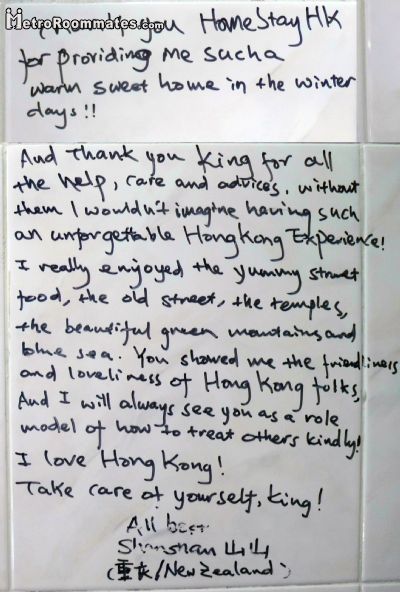 MetroRoommates.com
Thank you HomeStayHK
for providing me such a
warm sweet home in the winter
days!!
And Thank you King for all
the help, care and advices, without
them I wouldn't imagine having such
an unforgettable Hong Kong Experience!
I really enjoyed the yummy street
food, the old street, the temples,
the beautiful green mountains and
blue sea. You showed me the friendliness
and loveliness of Hong Kong folks,
And I will always see you as a role
model of how to treat others kindly!
I love Hong Kong!
Take care of yourself, King!
All best
Shanshan 山山
(重庆/New Zealand)